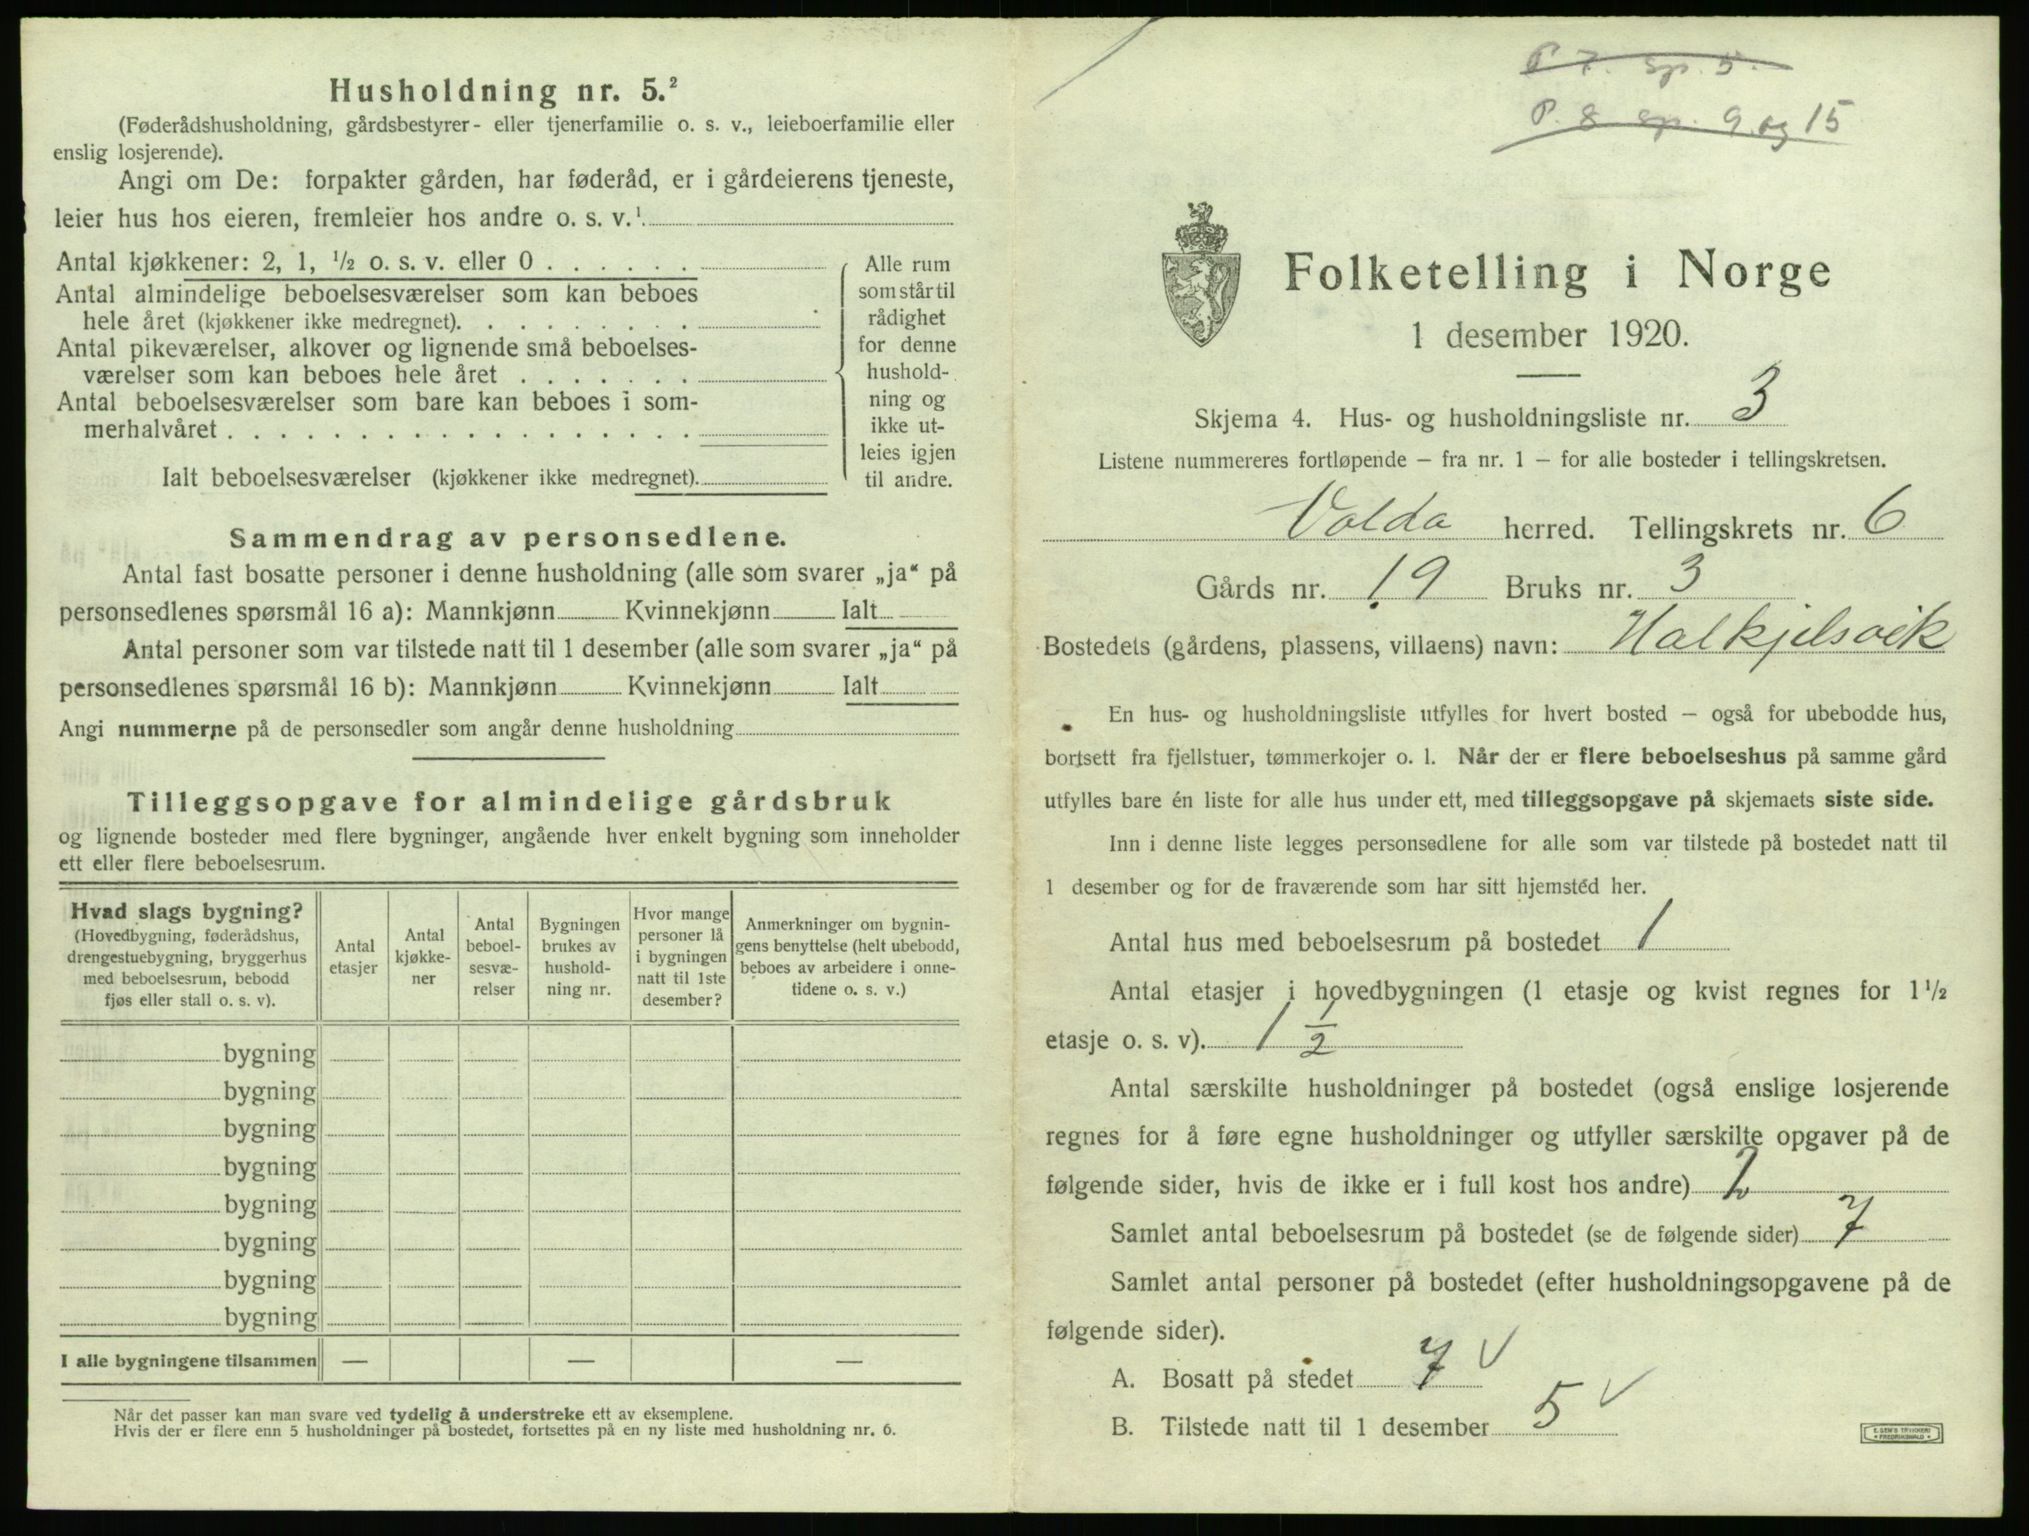 Husholdning nr. 5.²
(Føderådshusholdning, gårdsbestyrer- eller tjenerfamilie o. s. v., leieboerfamilie eller
enslig losjerende).
Angi om De: forpakter gården, har føderåd, er i gårdeierens tjeneste,
leier hus hos eieren, fremleier hos andre o. s. v.¹
Antal kjøkkener: 2, 1, ½ o. s. v. eller 0 . . . . . .
Antal almindelige beboelsesværelser som kan beboes
hele året (kjøkkener ikke medregnet). . . . . . . . .
Antal pikeværelser, alkover og lignende små beboelses-
værelser som kan beboes hele året . . . . . . .
Antal beboelsesværelser som bare kan beboes i som-
merhalvåret . . . . . . . . . . . . . . . . . .
Ialt beboelsesværelser (kjøkkener ikke medregnet).
Alle rum
som står til
rådighet
for denne
hushold-
ning og
ikke ut-
leies igjen
til andre.
Sammendrag av personsedlene.
Antal fast bosatte personer i denne husholdning (alle som svarer „ja“ på
personsedlenes spørsmål 16 a): Mannkjønn Kvinnekjønn Ialt
Antal personer som var tilstede natt til 1 desember (alle som svarer „ja“ på
personsedlenes spørsmål 16 b): Mannkjønn Kvinnekjønn Ialt
Angi nummerne på de personsedler som angår denne husholdning
Tilleggsopgave for almindelige gårdsbruk
og lignende bosteder med flere bygninger, angående hver enkelt bygning som inneholder
ett eller flere beboelsesrum.
Hvad slags bygning?
(Hovedbygning, føderådshus,
drengestuebygning, bryggerhus
med beboelsesrum, bebodd
fjøs eller stall o. s. v).
Antal
etasjer
Antal
kjøkke-
ner
Antal
beboel-
sesvæ-
relser
Bygningen
brukes av
hushold-
ning nr.
Hvor mange
personer lå
i bygningen
natt til 1ste
desember?
Anmerkninger om bygnin-
gens benyttelse (helt ubebodd,
beboes av arbeidere i onne-
tidene o. s. v.)
bygning
bygning
bygning
bygning
bygning
bygning
bygning
bygning
I alle bygningene tilsammen — — —
Når det passer kan man svare ved tydelig å understreke ett av eksemplene.
Hvis der er flere enn 5 husholdninger på bostedet, fortsettes på en ny liste med husholdning nr. 6.
P 7. sp. 5.
P. 8 sp. 9 og 15
Folketelling i Norge
1 desember 1920.
Skjema 4. Hus- og husholdningsliste nr. 3
Listene nummereres fortløpende – fra nr. 1 – for alle bosteder i tellingskretsen.
Volda herred. Tellingskrets nr. 6
Gårds nr. 19 Bruks nr. 3
Bostedets (gårdens, plassens, villaens) navn: Halkjelsvik
En hus- og husholdningsliste utfylles for hvert bosted – også for ubebodde hus,
bortsett fra fjellstuer, tømmerkojer o. l. Når der er flere beboelseshus på samme gård
utfylles bare én liste for alle hus under ett, med tilleggsopgave på skjemaets siste side.
Inn i denne liste legges personsedlene for alle som var tilstede på bostedet natt til
1 desember og for de fraværende som har sitt hjemsted her.
Antal hus med beboelsesrum på bostedet 1
Antal etasjer i hovedbygningen (1 etasje og kvist regnes for 1½
etasje o. s. v). 1½
Antal særskilte husholdninger på bostedet (også enslige losjerende
regnes for å føre egne husholdninger og utfyller særskilte opgaver på de
følgende sider, hvis de ikke er i full kost hos andre) 2
Samlet antal beboelsesrum på bostedet (se de følgende sider) 7
Samlet antal personer på bostedet (efter husholdningsopgavene på de
følgende sider).
A. Bosatt på stedet 7 √
B. Tilstede natt til 1 desember 5 √
E. SEM'S TRYKKERI
FREDRIKSHALD